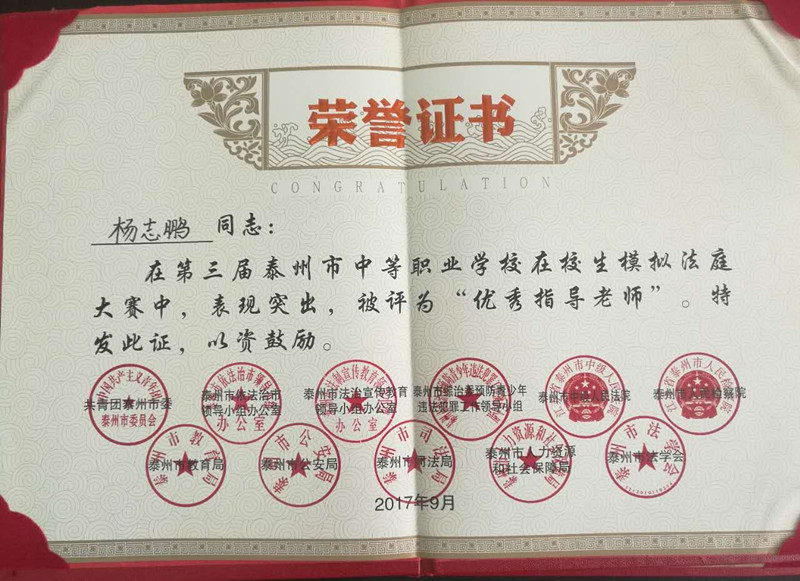 荣誉证书
CONGRATULATION
杨志鹏 同志：
在第三届泰州市中等职业学校在校生模拟法庭
大赛中，表现突出，被评为“优秀指导老师”。特
发此证，以资鼓励。
共青团泰州市委
泰州市依法治市领导小组办公室
泰州市法治宣传教育领导小组办公室
泰州市综治委预防青少年违法犯罪工作领导小组
泰州市中级人民法院
泰州市人民检察院
泰州市教育局
泰州市公安局
泰州市司法局
泰州市人力资源和社会保障局
泰州市法学会
2017年9月